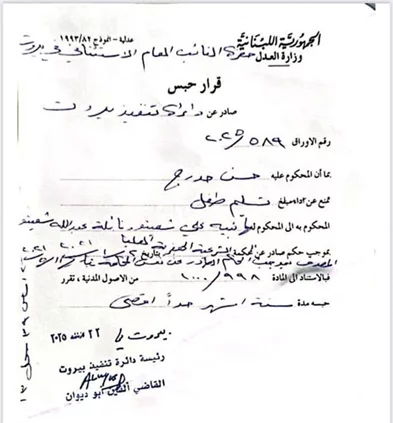 الجمهورية اللبنانية
وزارة العدل
عدلية - النموذج ١٩٩٣/٨٢
حضرة النائب العام الاستئنافي في بيروت
قرار حبس
صادر عن دائرة تنفيذ بيروت
رقم الاوراق ٢٠٢٥/٥٨٩
بما أن المحكوم عليه حسن حدرج
تمتع عن اداء مبلغ تسليم طفل
المحكوم به الى المحكوم لها رانيه علي شعيتو ونائلة عبدالله شعيتو
بموجب حكم صادر عن المحكمة الشرعية الجعفرية العليا
بتاريخ ٢٠٢١
المصدق بموجب
فبالاستناد الى المادة ١٠٠٠/٩٩٨ من الاصول المدنية ، تقرر
حبسه مدة ستة اشهر حداً اقصى
بيروت في ٢٢ ٢٠٢٥
رئيسة دائرة تنفيذ بيروت
القاضي ابو ديوان